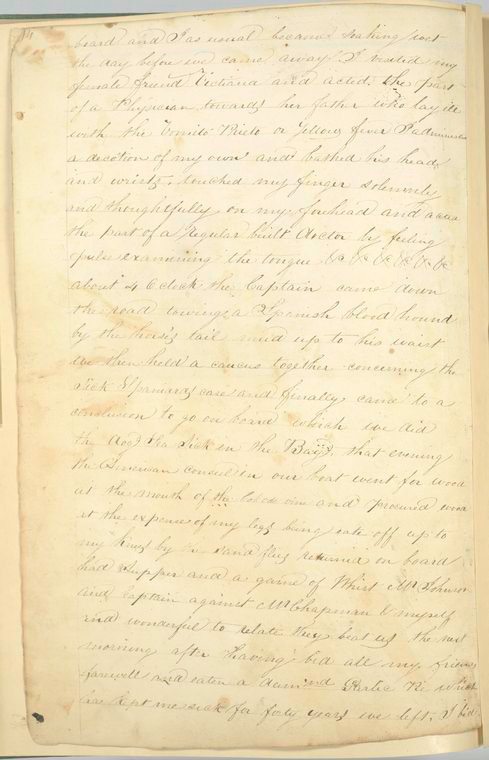 board and I as usual became soaking wet
the day before we came away I visited my
female friend and acted the part
of a Physician towards her father who lay ill
with the Vomito Prieto or Yellow fever I administered
a decoction of my own and bathed his head
and wrists, touched my finger solemnly
and thoughtfully on my forehead and acted
the part of a regular built doctor by feeling
pulse examining the tongue &c &c &c &c &c &c
about 4 O clock the Captain came down
the road towing a Spanish blood hound
by the horse's tail mud up to his waist
we then held a caucus together concerning the
sick Spaniards case and finally came to a
conclusion to go on board which we did
the dog Sea Sick in the Bay. that evening
the American consul in our boat went for wood
at the mouth of the and procured wood
at the expense of my legs being eate off up to
my knees by the sand flies returned on board
had supper and a game of Whist Mr Johnson
and captain against Mr Chapman & myself
and wonderful to relate they beat us the next
morning after having bid all my friends
farewell and eaten a which
has kept me sick for forty years we left. I bid